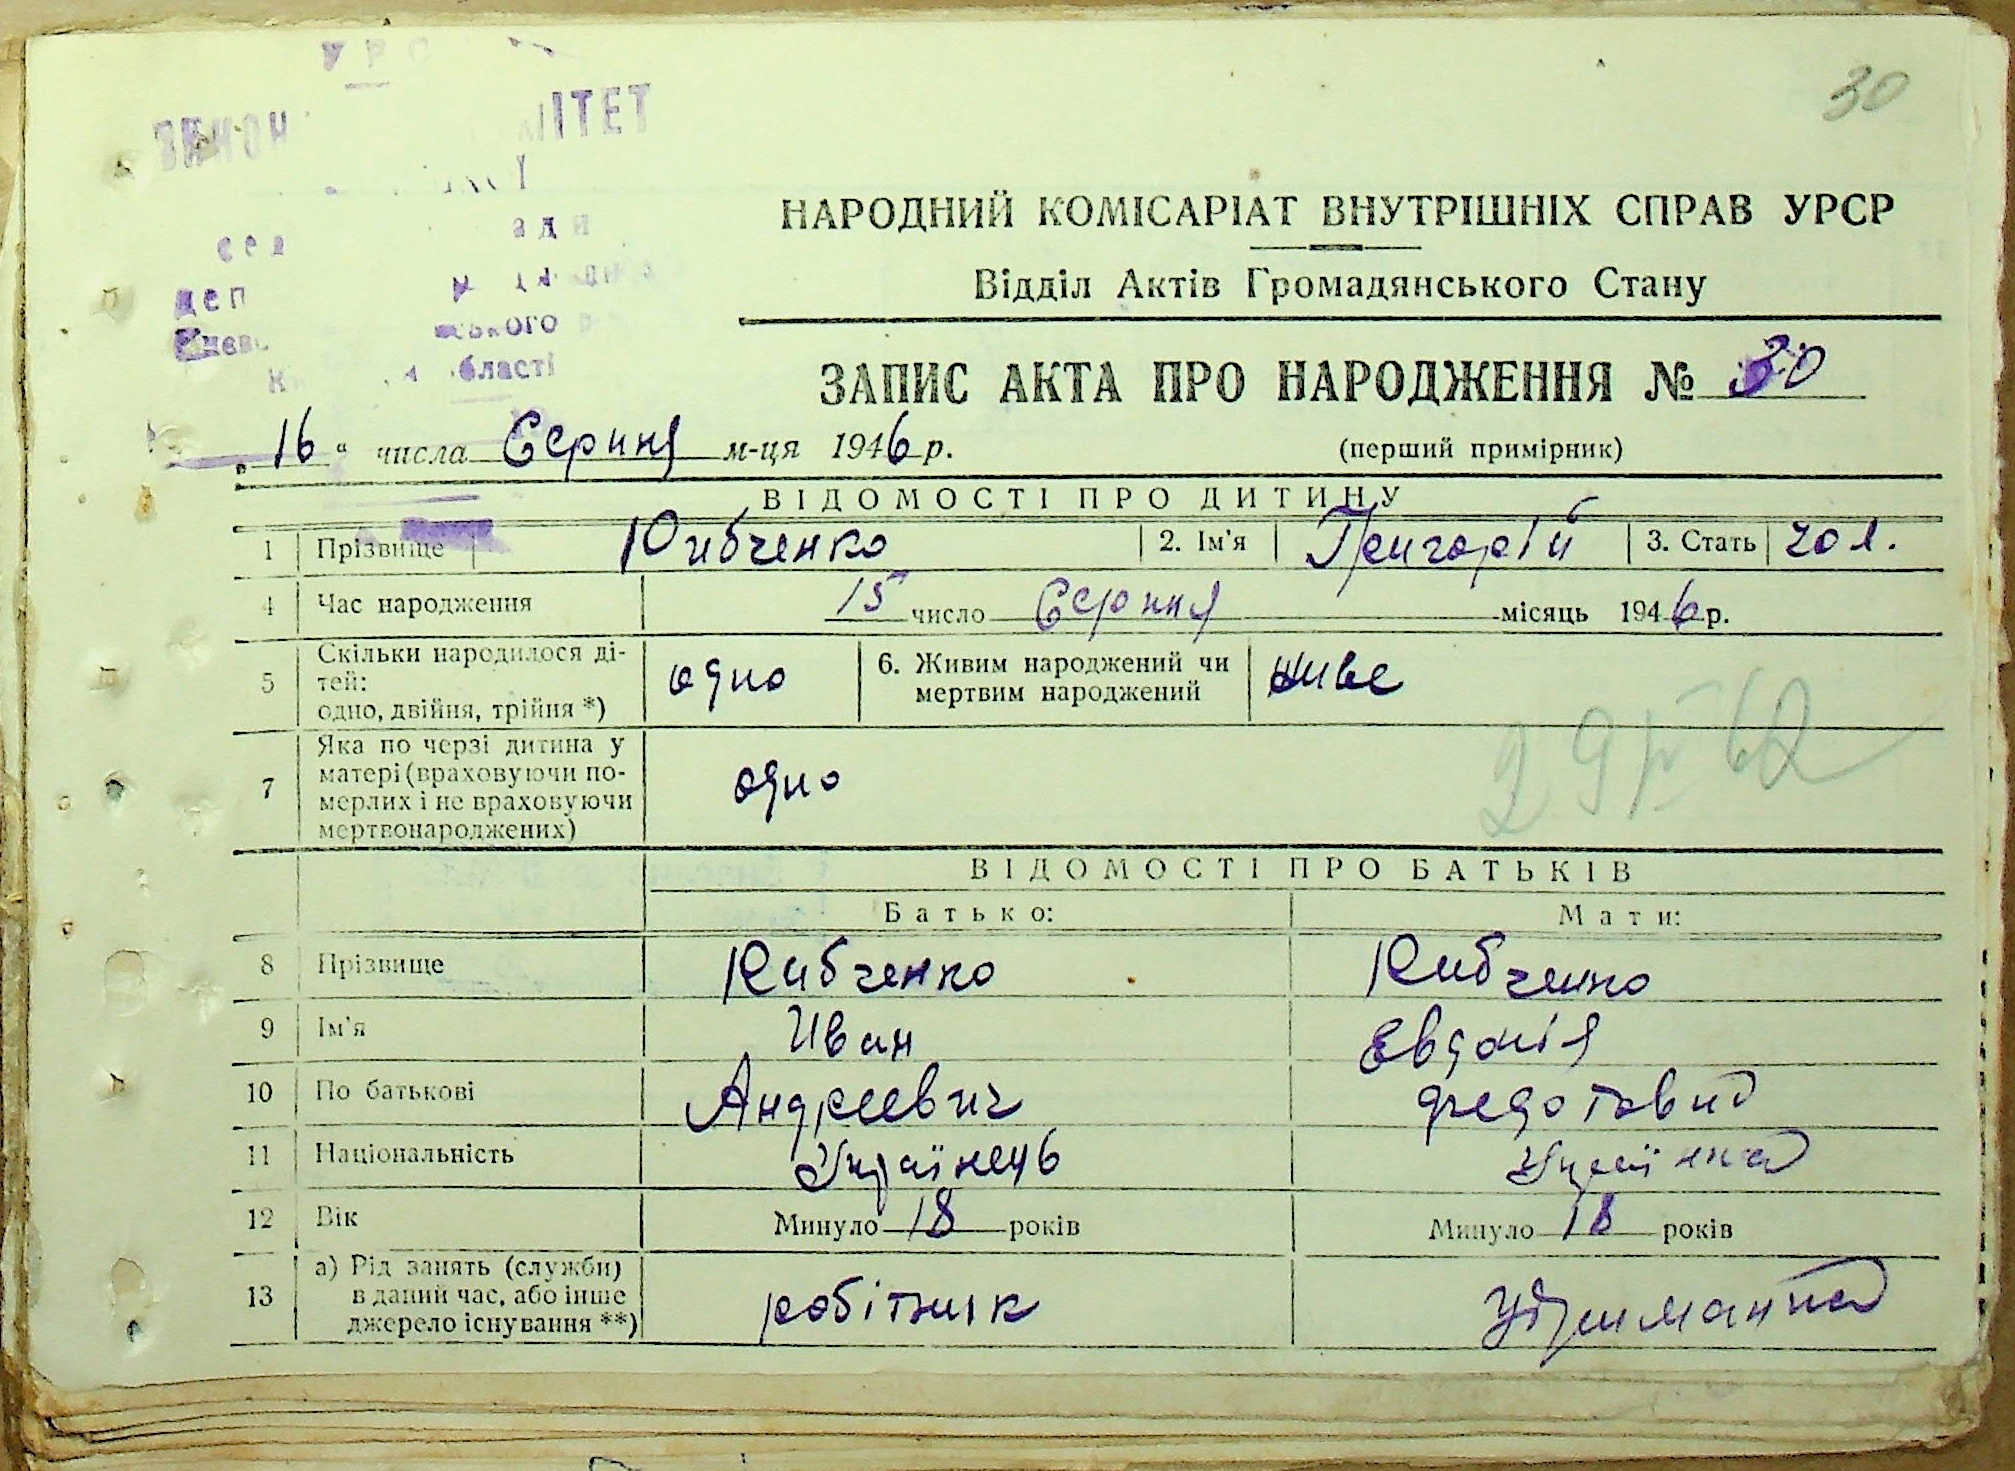 30
УРС
ВИКОН МІТЕТ
сел ади
деп
ського
області
НАРОДНИЙ КОМІСАРІАТ ВНУТРІШНІХ СПРАВ УРСР
Відділ Актів Громадянського Стану
ЗАПИС АКТА ПРО НАРОДЖЕННЯ № 30
„16“ числа Серпня м-ця 1946 р. (перший примірник)
ВІДОМОСТІ ПРО ДИТИНУ
1 Прізвище Кибченко 2. Ім'я Григорій 3. Стать чол.
4 Час народження 15 число Серпня місяць 1946 р.
5 Скільки народилося ді-
тей:
одно, двійня, трійня *) одно 6. Живим народжений чи
мертвим народжений живе
7 Яка по черзі дитина у
матері (враховуючи по-
мерлих і не враховуючи
мертвонароджених) одно
ВІДОМОСТІ ПРО БАТЬКІВ
Батько: Мати:
8 Прізвище Кибченко Кибченко
9 Ім'я Иван Евдокія
10 По батькові Андреевич Федотовна
11 Національність Українець Українка
12 Вік Минуло 18 років Минуло 18 років
13 а) Рід занять (служби)
в даний час, або інше
джерело існування **) робітник утриманка